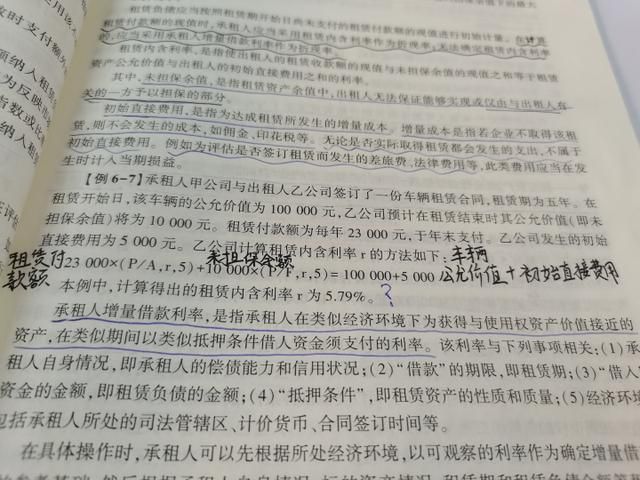 租赁负债应当按照租赁期开始日尚未支付的租赁付款额的现值进行初始计量。在计算
租赁付款额的现值时,承租人应当采用租赁内含利率作为折现率;无法确定租赁内含利率
的,应当采用承租人增量借款利率作为折现率。
租赁内含利率,是指使出租人的租赁收款额的现值与未担保余值的现值之和等于租赁
资产公允价值与出租人的初始直接费用之和的利率。
其中,未担保余值,是指租赁资产余值中,出租人无法保证能够实现或仅由与出租人有
关的一方予以担保的部分。
初始直接费用,是指为达成租赁所发生的增量成本。增量成本是指若企业不取得该租
赁,则不会发生的成本,如佣金、印花税等。无论是否实际取得租赁都会发生的支出,不属于
初始直接费用。例如为评估是否签订租赁而发生的差旅费、法律费用等,此类费用应当在发
生时计入当期损益。
【例6-7】承租人甲公司与出租人乙公司签订了一份车辆租赁合同,租赁期为五年。在
租赁开始日,该车辆的公允价值为100 000元,乙公司预计在租赁结束时其公允价值(即未
担保余值)将为10 000元。租赁付款额为每年23 000元,于年末支付。乙公司发生的初始
直接费用为5 000元。乙公司计算租赁内含利率r的方法如下:
租赁付款额 未担保余额 车辆公允价值+初始直接费用
23 000×(P/A,r,5)+10 000×(P/F,r,5)=100 000+5 000
本例中,计算得出的租赁内含利率r为5.79%。?
承租人增量借款利率,是指承租人在类似经济环境下为获得与使用权资产价值接近的
资产,在类似期间以类似抵押条件借入资金须支付的利率。该利率与下列事项相关:(1)承
租人自身情况,即承租人的偿债能力和信用状况;(2)“借款”的期限,即租赁期;(3)“借入”
资金的金额,即租赁负债的金额;(4)“抵押条件”,即租赁资产的性质和质量;(5)经济环境
包括承租人所处的司法管辖区、计价货币、合同签订时间等。
在具体操作时,承租人可以先根据所处经济环境,以可观察的利率作为确定增量借